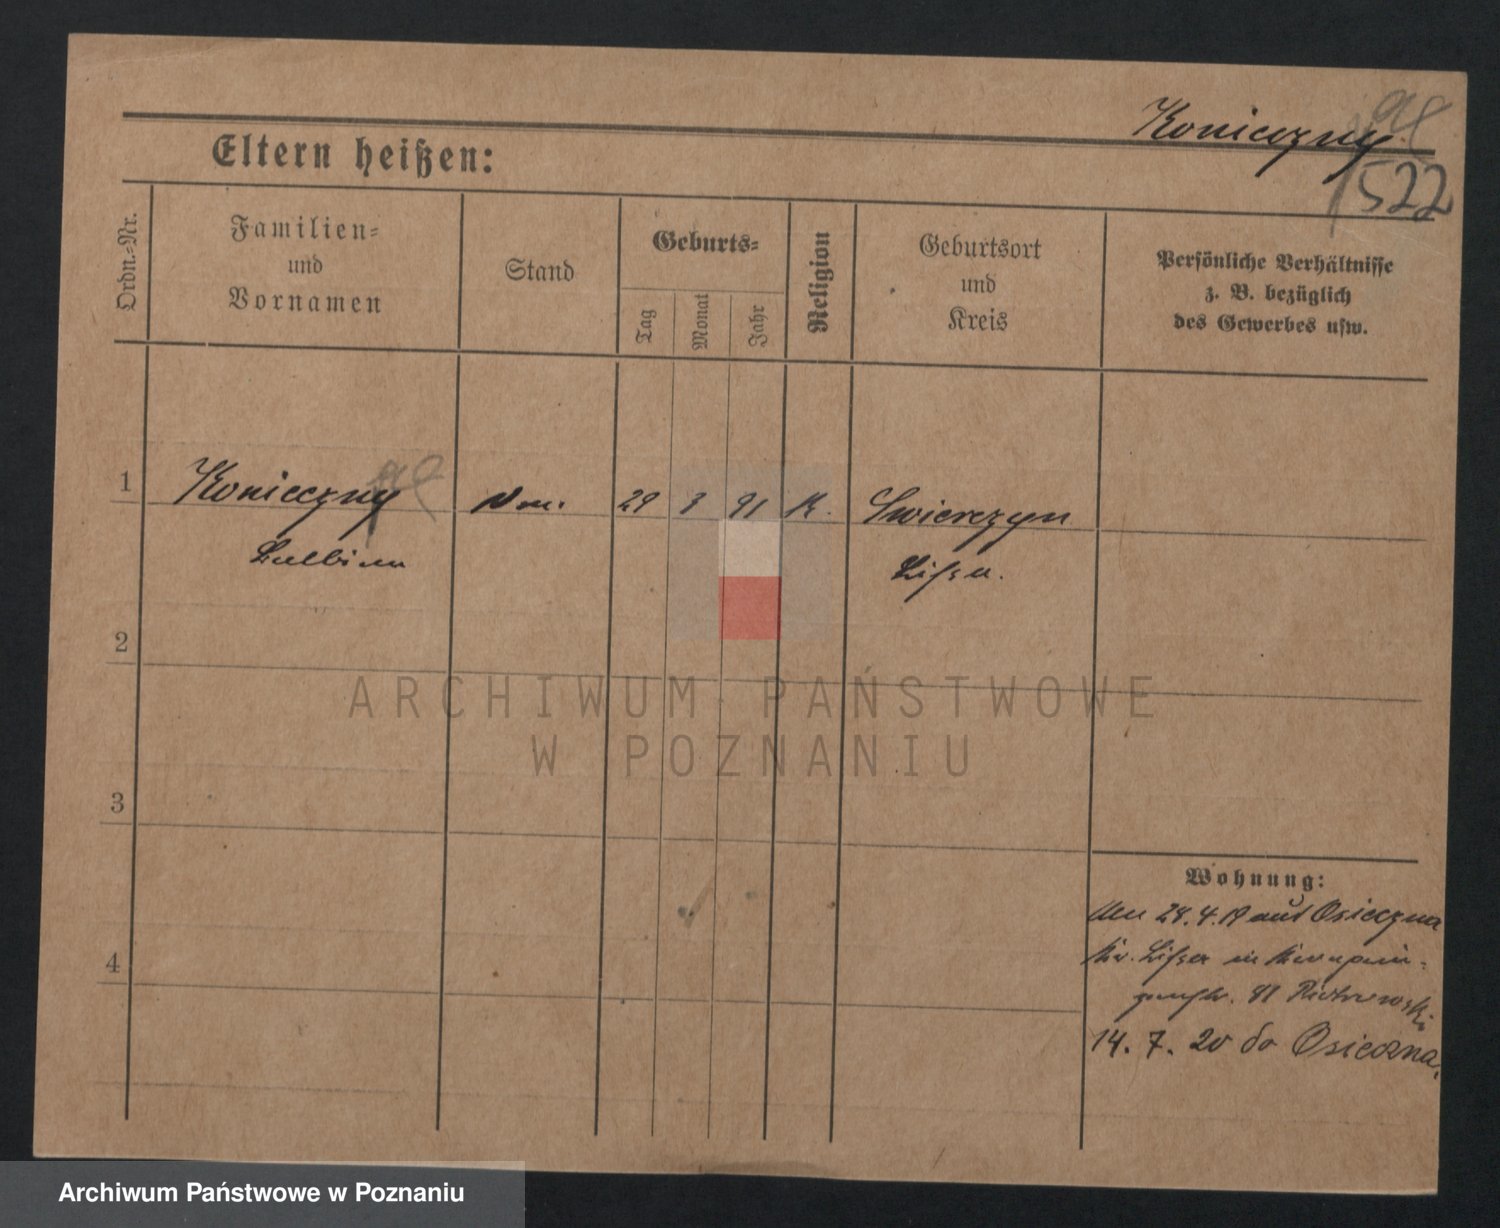 Konieczny
Eltern heißen:
1522
Ordn.-Nr.
Familien-
und
Vornamen
Stand
Geburts-
Tag
Monat
Jahr
Religion
Geburtsort
und
Kreis
Persönliche Verhältnisse
z. B. bezüglich
des Gewerbes usw.
1
Konieczny
29 3 91 K.
Swierczyn
Lissa.
2
ARCHIWUM PAŃSTWOWE
W POZNANIU
3
Wohnung:
28.4.19 aus Osieczna
Kr. Lissa in
41 Piotrowski
4
14. 7. 20 do Osieczna.
Archiwum Państwowe w Poznaniu